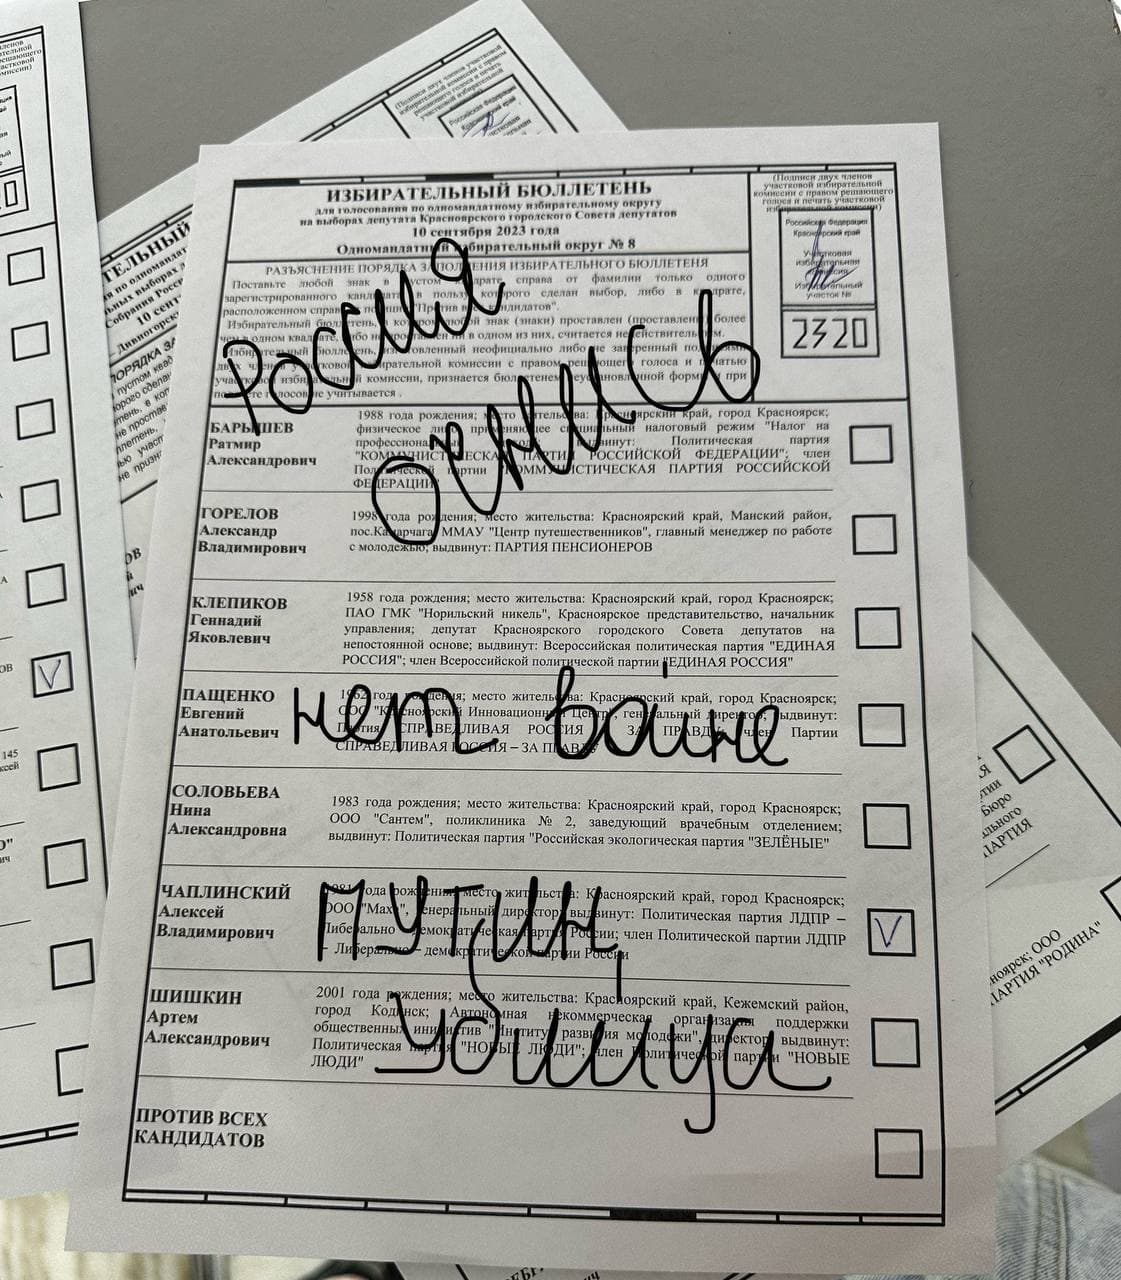 ИЗБИРАТЕЛЬНЫЙ БЮЛЛЕТЕНЬ
для голосования по одномандатному избирательному округу
на выборах депутата Красноярского городского Совета депутатов
10 сентября 2023 года
Одномандатный избирательный округ № 8
(Подписи двух членов
участковой избирательной
комиссии с правом решающего
голоса и печать участковой
избирательной комиссии)
Российская Федерация
Красноярский край
Участковая
избирательная
комиссия
Избирательный
участок №
2320
РАЗЪЯСНЕНИЕ ПОРЯДКА ЗАПОЛНЕНИЯ ИЗБИРАТЕЛЬНОГО БЮЛЛЕТЕНЯ
Поставьте любой знак в пустом квадрате справа от фамилии только одного
зарегистрированного кандидата, в пользу которого сделан выбор, либо в квадрате,
расположенном справа от позиции "Против всех кандидатов".
Избирательный бюллетень, в котором любой знак (знаки) проставлен (проставлены) более
чем в одном квадрате, либо не проставлен ни в одном из них, считается недействительным.
Избирательный бюллетень, изготовленный неофициально либо не заверенный подписями
двух членов участковой избирательной комиссии с правом решающего голоса и печатью
участковой избирательной комиссии, признается бюллетенем неустановленной формы и при
подсчете голосов не учитывается .
Россия
очнись
БАРЫШЕВ
Ратмир
Александрович
1988 года рождения; место жительства: Красноярский край, город Красноярск;
физическое лицо, применяющее специальный налоговый режим "Налог на
профессиональный доход"; выдвинут: Политическая партия
"КОММУНИСТИЧЕСКАЯ ПАРТИЯ РОССИЙСКОЙ ФЕДЕРАЦИИ"; член
Политической партии "КОММУНИСТИЧЕСКАЯ ПАРТИЯ РОССИЙСКОЙ
ФЕДЕРАЦИИ"
ГОРЕЛОВ
Александр
Владимирович
1998 года рождения; место жительства: Красноярский край, Манский район,
пос.Камарчага; ММАУ "Центр путешественников", главный менеджер по работе
с молодежью; выдвинут: ПАРТИЯ ПЕНСИОНЕРОВ
КЛЕПИКОВ
Геннадий
Яковлевич
1958 года рождения; место жительства: Красноярский край, город Красноярск;
ПАО ГМК "Норильский никель", Красноярское представительство, начальник
управления; депутат Красноярского городского Совета депутатов на
непостоянной основе; выдвинут: Всероссийская политическая партия "ЕДИНАЯ
РОССИЯ"; член Всероссийской политической партии "ЕДИНАЯ РОССИЯ"
ПАЩЕНКО
Евгений
Анатольевич
1962 года рождения; место жительства: Красноярский край, город Красноярск;
ООО "Красноярский Инновационный Центр", генеральный директор; выдвинут:
Партия СПРАВЕДЛИВАЯ РОССИЯ – ЗА ПРАВДУ; член Партии
СПРАВЕДЛИВАЯ РОССИЯ – ЗА ПРАВДУ
нет войне
СОЛОВЬЕВА
Нина
Александровна
1983 года рождения; место жительства: Красноярский край, город Красноярск;
ООО "Сантем", поликлиника № 2, заведующий врачебным отделением;
выдвинут: Политическая партия "Российская экологическая партия "ЗЕЛЁНЫЕ"
ЧАПЛИНСКИЙ
Алексей
Владимирович
1981 года рождения; место жительства: Красноярский край, город Красноярск;
ООО генеральный директор; выдвинут: Политическая партия ЛДПР –
Либерально – демократическая партия России; член Политической партии ЛДПР
– Либерально – демократической партии России
V
Путин,
убийца
ШИШКИН
Артем
Александрович
2001 года рождения; место жительства: Красноярский край, Кежемский район,
город Кодинск; Автономная некоммерческая организация поддержки
общественных инициатив "Институт развития молодежи", директор; выдвинут:
Политическая партия "НОВЫЕ ЛЮДИ"; член Политической партии "НОВЫЕ
ЛЮДИ"
ПРОТИВ ВСЕХ
КАНДИДАТОВ